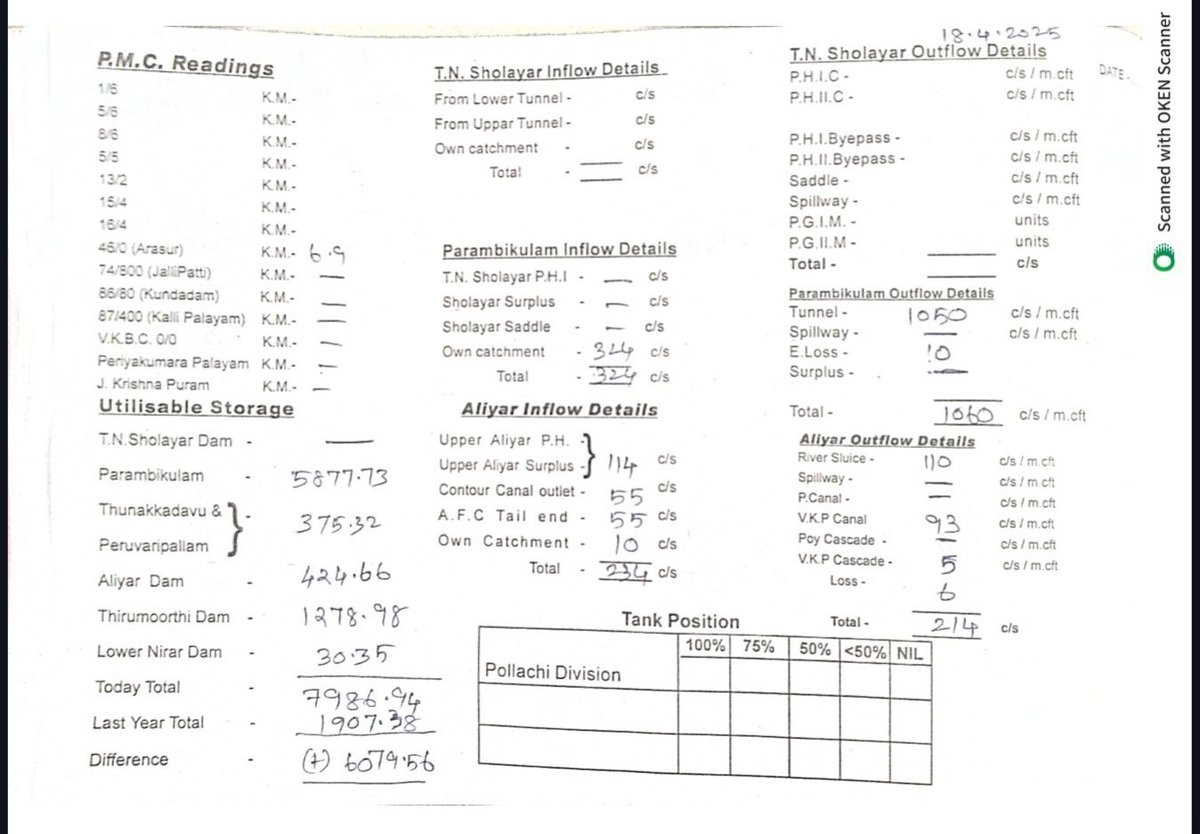 18.4.2025
P.M.C. Readings
1/6 K.M.-
5/6 K.M.-
8/6 K.M.-
5/5 K.M.-
13/2 K.M.-
15/4 K.M.-
16/4 K.M.-
46/0 (Arasur) K.M.- 6.9
74/800 (JalliPatti) K.M.- —
86/80 (Kundadam) K.M.- —
87/400 (Kalli Palayam) K.M.- —
V.K.B.C. 0/0 K.M.- —
Periyakumara Palayam K.M.- —
J. Krishna Puram K.M.- —
Utilisable Storage
T.N.Sholayar Dam - —
Parambikulam - 5877.73
Thunakkadavu & Peruvaripallam } - 375.32
Aliyar Dam - 424.66
Thirumoorthi Dam - 1278.98
Lower Nirar Dam - 30.35
Today Total - 7986.94
Last Year Total - 1907.38
Difference - (+) 6079.56
T.N. Sholayar Inflow Details
From Lower Tunnel - c/s
From Uppar Tunnel - c/s
Own catchment - c/s
Total - c/s
Parambikulam Inflow Details
T.N. Sholayar P.H.I - — c/s
Sholayar Surplus - — c/s
Sholayar Saddle - — c/s
Own catchment - 324 c/s
Total - 324 c/s
Aliyar Inflow Details
Upper Aliyar P.H. -
Upper Aliyar Surplus - } 114 c/s
Contour Canal outlet - 55 c/s
A.F.C Tail end - 55 c/s
Own Catchment - 10 c/s
Total - 234 c/s
T.N. Sholayar Outflow Details
P.H.I.C - c/s / m.cft
P.H.II.C - c/s / m.cft
P.H.I.Byepass - c/s / m.cft
P.H.II.Byepass - c/s / m.cft
Saddle - c/s / m.cft
Spillway - c/s / m.cft
P.G.I.M. - units
P.G.II.M - units
Total - c/s
Parambikulam Outflow Details
Tunnel - 1050 c/s / m.cft
Spillway - — c/s / m.cft
E.Loss - 10
Surplus - —
Total - 1060 c/s / m.cft
Aliyar Outflow Details
River Sluice - 110 c/s / m.cft
Spillway - — c/s / m.cft
P.Canal - — c/s / m.cft
V.K.P Canal 93 c/s / m.cft
Poy Cascade - — c/s / m.cft
V.K.P Cascade - 5 c/s / m.cft
Loss - 6
Total - 214 c/s
Tank Position
100% 75% 50% <50% NIL
Pollachi Division
DATE.
Scanned with OKEN Scanner